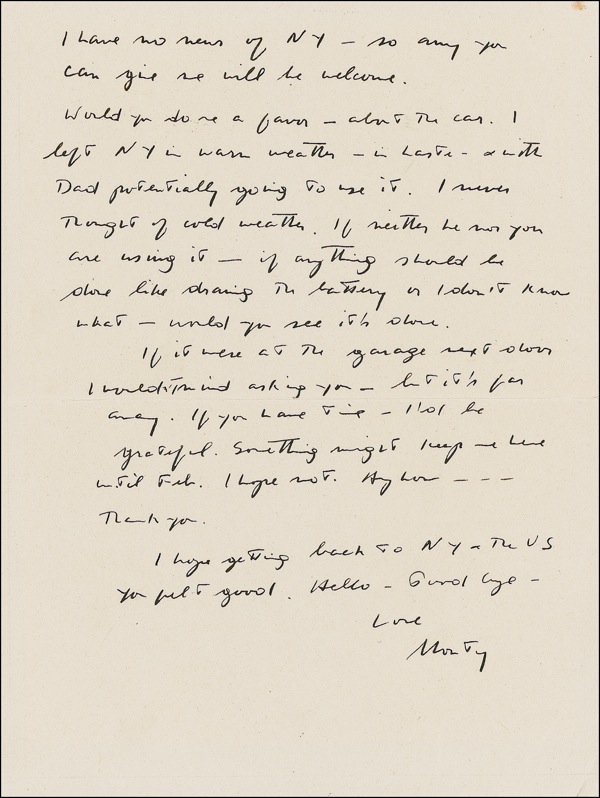 I have no news of NY – so any you
can give me will be welcome.
Would you do me a favor – about the car. I
left NY in warm weather – in haste – & with
Dad potentially going to use it. I never
thought of cold weather. If neither he nor you
are using it – if anything should be
done like draining the battery or I don't know
what – would you see it's done.
If it were at the garage next door
I wouldn't mind asking you – but it's far
away. If you have time – I'd be
grateful. Something might keep me here
until Feb. I hope not. Anyhow – – –
Thank you.
I hope getting back to NY & the US
you felt good. Hello – Good bye –
Love
Monty